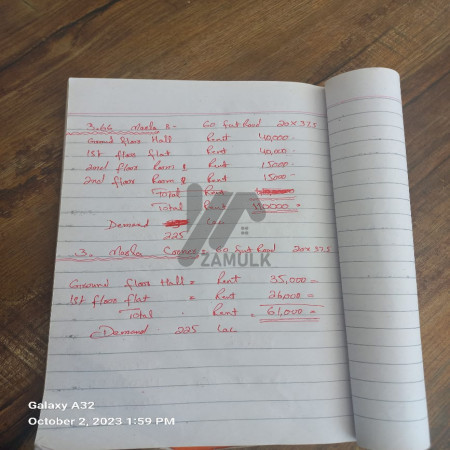 3.66 Marla 8- 60 Feet Road 20x37.5
Ground floor Hall Rent 40,000
1st floor flat Rent 40,000
2nd floor Room & Rent 15000
2nd floor Room & Rent 15000
Total Rent
Total Rent 110000 =
Demand Lac
225
3. Marla Corner = 60 Feet Road 20x37.5
ZAMULK
Ground floor Hall = Rent 35,000 =
1st floor flat = Rent 26,000 =
Total . Rent = 61,000 =
Demand 225 Lac
Galaxy A32
October 2, 2023 1:59 PM